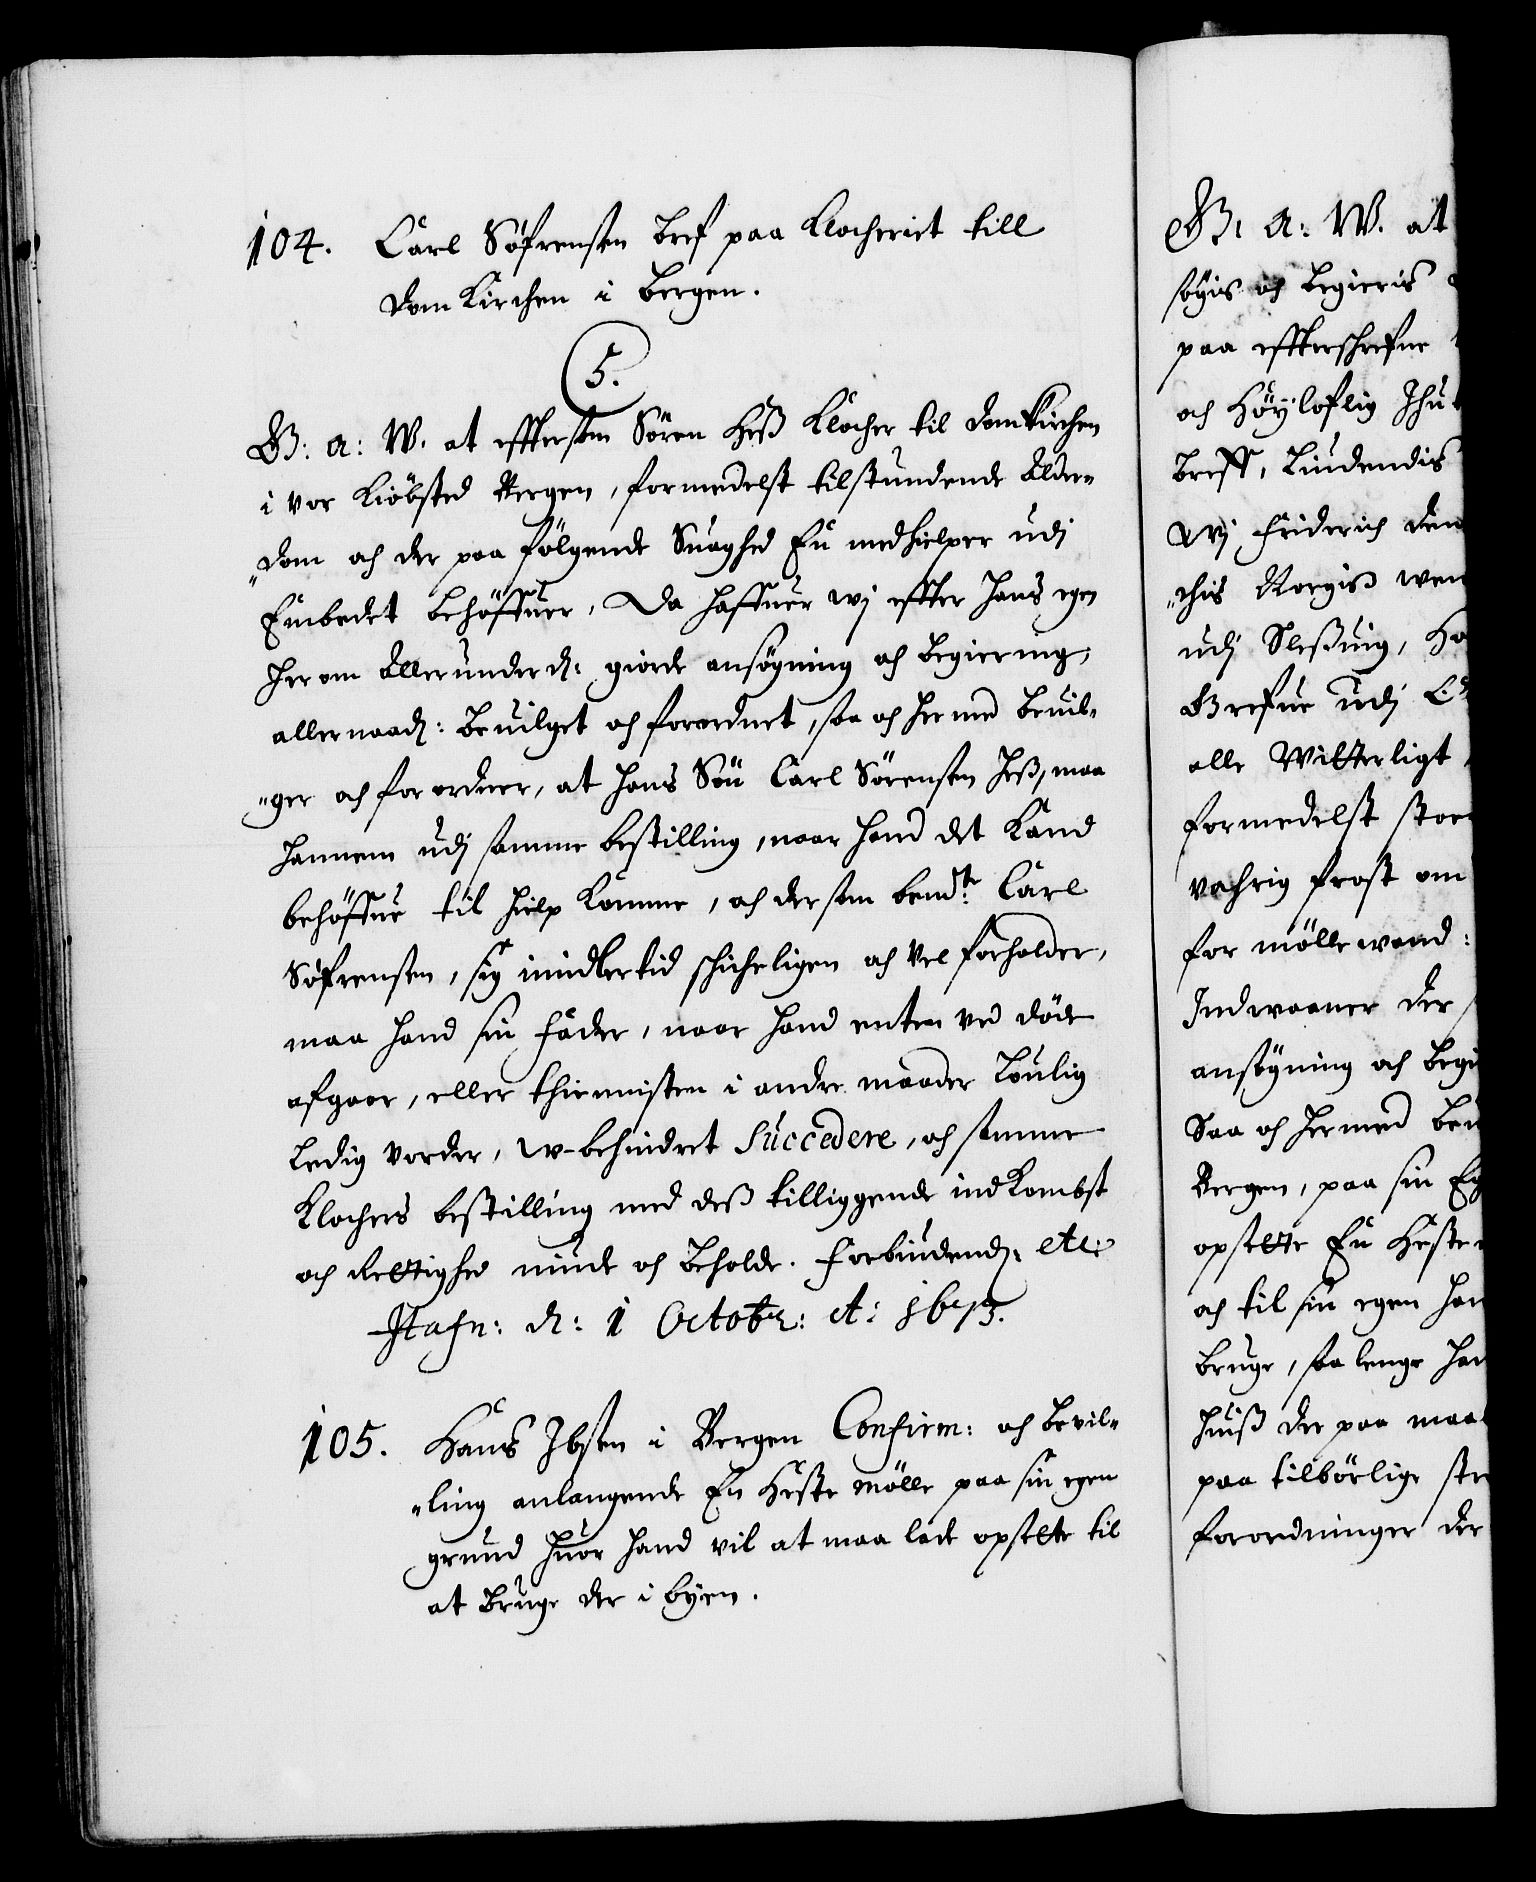 104. Carl Søfrensen bref paa Klocheriet till
Dom Kirchen i Bergen.
5.
G: A: W. at effterdom Sören Heß Klocher til Domkirchen
i vor Kiöbsted Bergen, formedelst tilstundende Alder-
"dom och der paa fölgende Suaghed En medhielper udj
Embedet behöffuer, Da haffuer wj effter hans egen
her om Allerunderd: giorde ansøgning och begiering,
allernaad: Beuilget och forordnet, saa och hermed beuil-
"ger och forordner, at hans Sön Carl Sörensen Heß, maa
hannem udj samme bestilling, naar hand det Kand
behöffue til hielp Komme, och dersom bemdte Carl
Søfrensen, sig imidlertid schicheligen och vel forholder,
maa hand sin Fader, naar hand enten ved døde
afgaar, eller thienisten i andre maader Loulig
Ledig vorder, w-behindret Succedere, och samme
Klochers bestilling med deß tilliggende indkombst
och Rettighed niude och beholde. Forbiudend: etc:
Hafn: d: 1 Octobr: A: 1673.
105. Hans Ibsen i Bergen Confirm: och bevil-
"ling anlangende En Heste mölle paa sin egen
grund huor hand vil at maa lade opsette til
at bruge der i byen.
G: A: W. at
søgis och begieris
paa effterschrefne
och Höyloflig Ihu
breff, Liudendis
Wj Friderich den
"chis Norgis wen
udj Sleßuig, Ho
Grefue udj
alle Witterligt
formedelst stor
vahrig frost om
for mölle wand:
Indwaaner der
ansøgning och begi
Saa och hermed beu
Bergen, paa sin Eg
opsette En Heste
och til sin egen han
bruge, saa lenge han
huiß der paa maa
paa tilbörlige ste
forordninger der